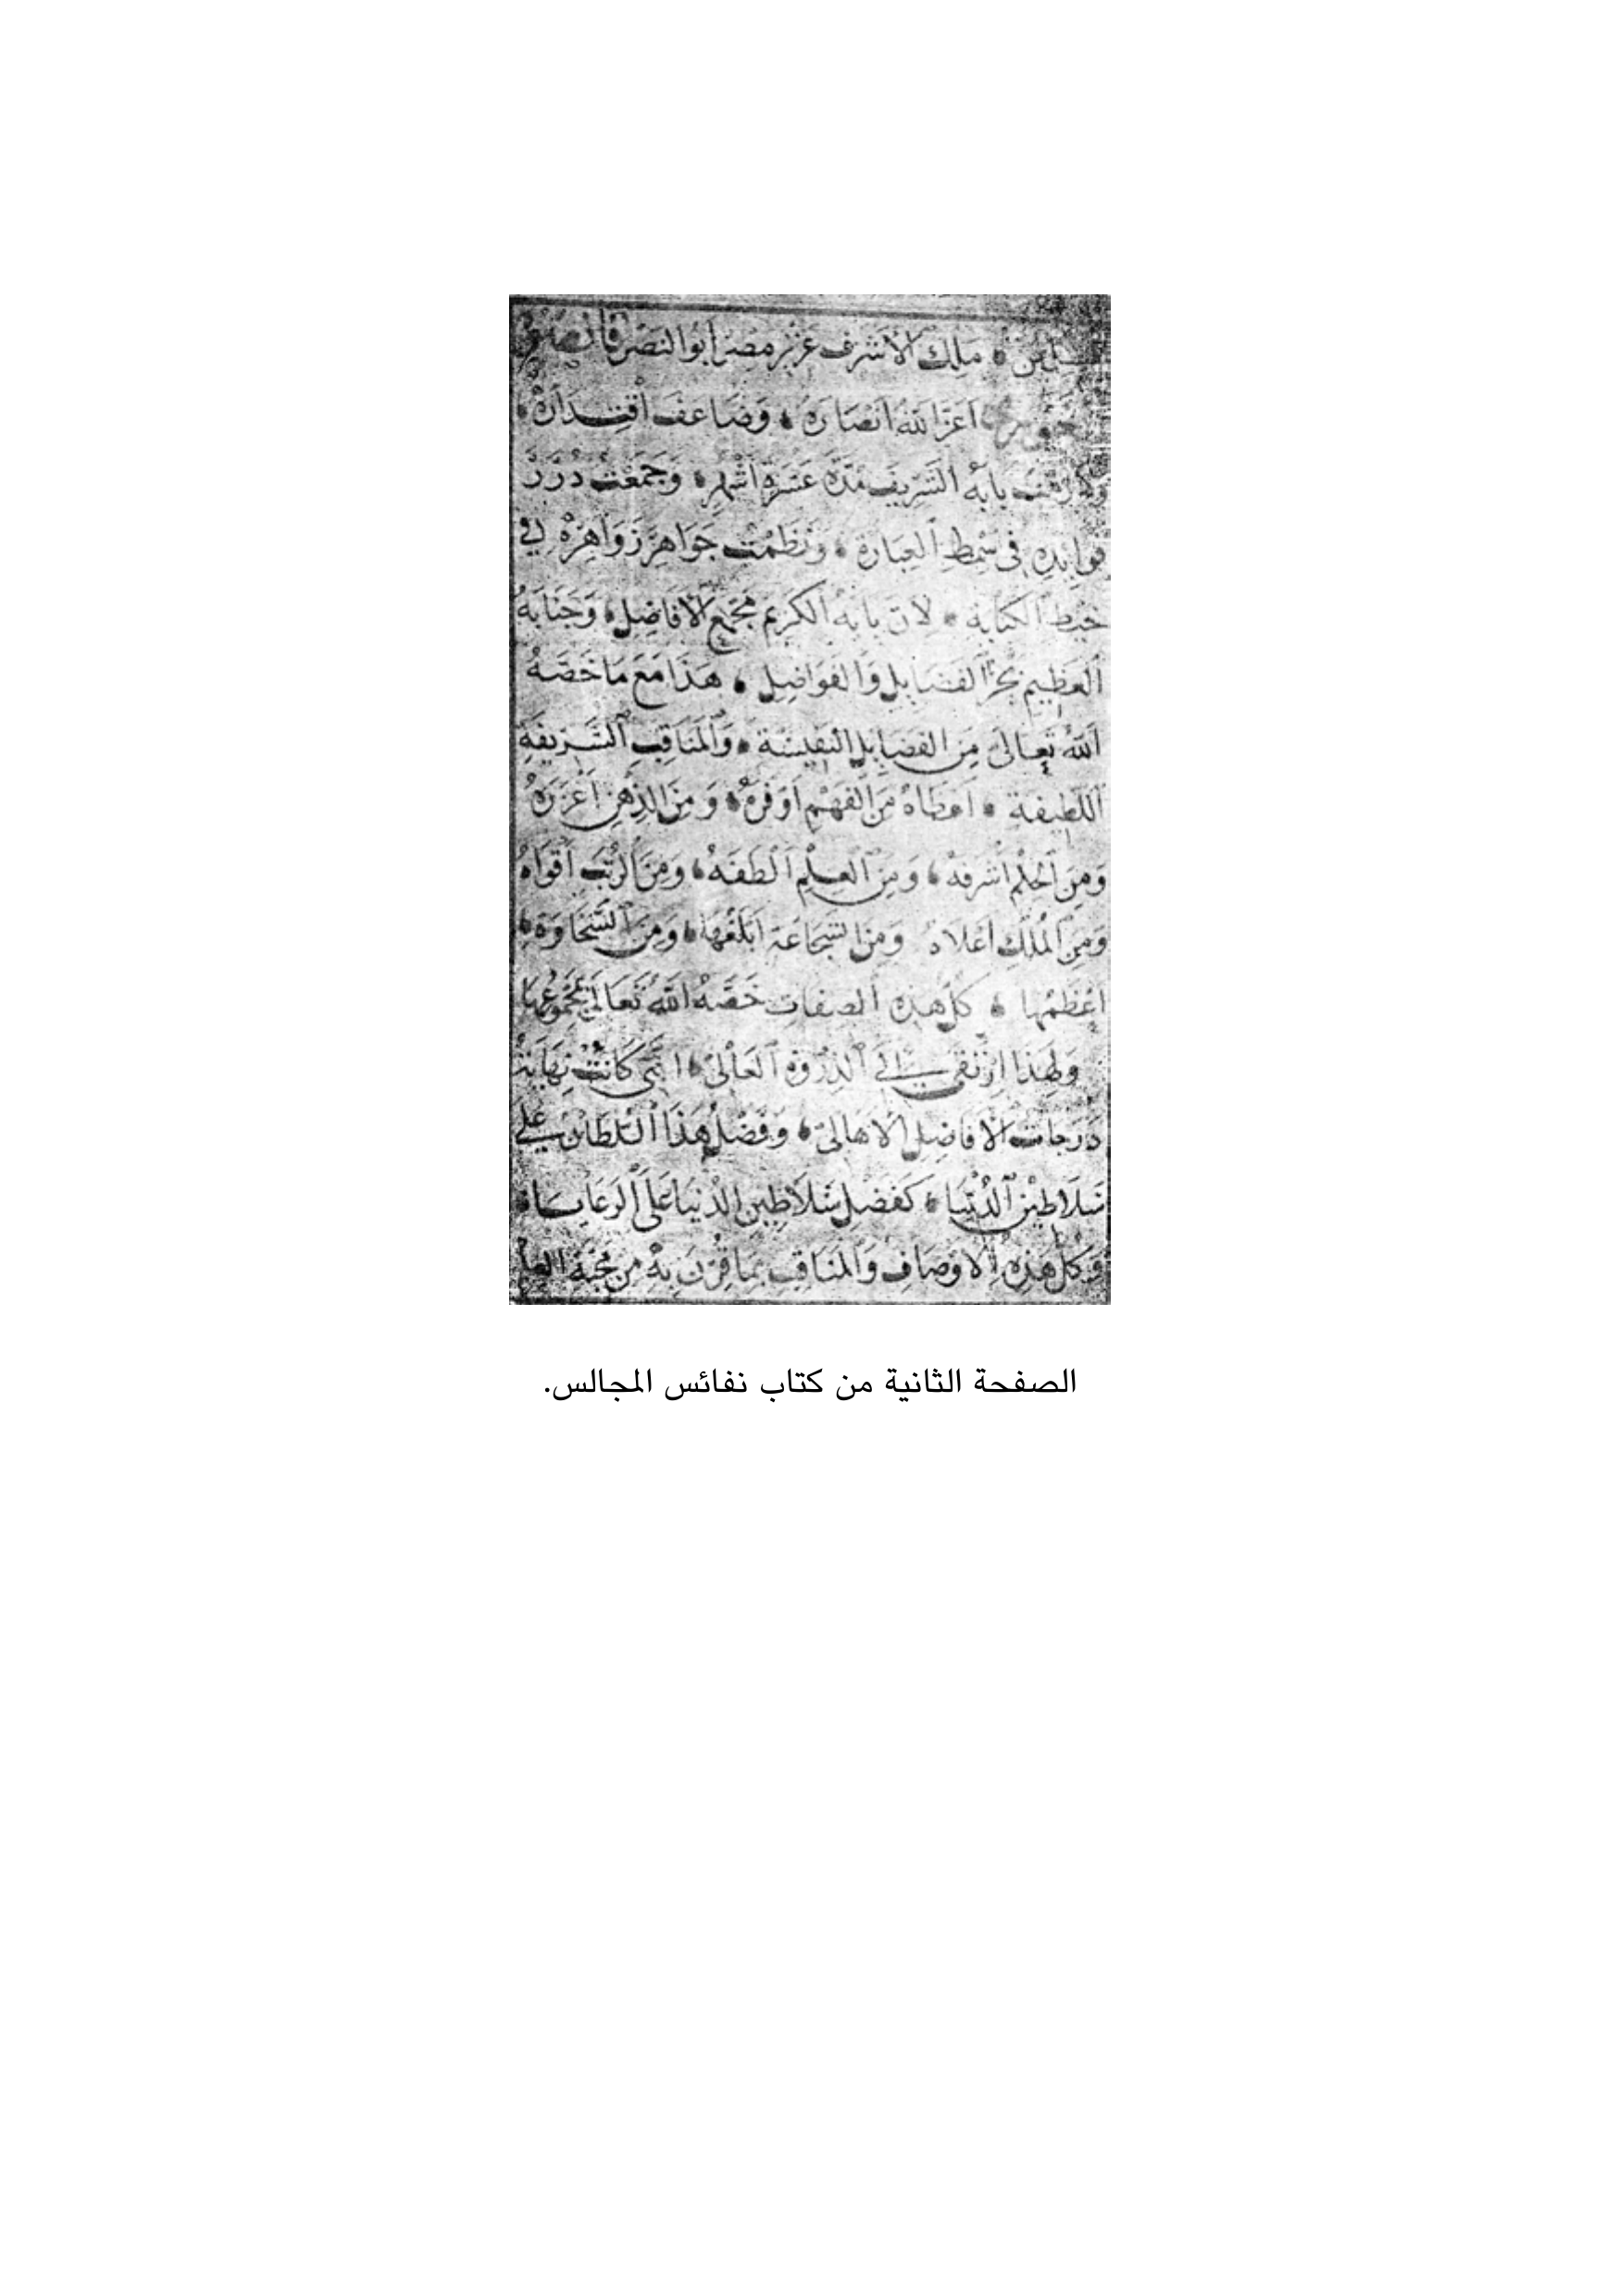 مَلِكُ الْاَشْرَف عَزِيزِ مِصْرَ اَبُو النَّصْر قَانْصُوه
اَعَزَّ اللهُ اَنْصَارَهُ ۞ وَضَاعَفَ اقْتِدَارَهُ ۞
بَابَهُ الشَّرِيفَ مُدَّةَ عَشَرَةِ اَشْهُرٍ ۞ وَجَمَعْتُ دُرَرَ
فَوَايِدِهِ فى سِمْطِ اَلعِبَارَة ۞ وَنَظَمْتُ جَوَاهِرَ زَوَاهِرَهُ فِي
خَيْطِ اَلْكِتَابَةِ ۞ لِاَنَّ بَابَهُ الكَرِيم مَجْمَعُ الاَفَاضِل ۞ وَجَنَابَهُ
اَلعَظِيم بَحْرُ الفَضَايِل وَالفَوَاضِل ۞ هَذَا مَعَ مَا خَصَّهُ
اللهُ تَعَالَى مِنَ الفَضَايِلِ النَّفِيسَة ۞ وَالمَنَاقِبِ الشَّرِيفَةِ
اَللَّطِيفَة ۞ اَعْطَاهُ مِنَ اَلفَهْمِ اَوْفَرَهُ ۞ وَمِنَ الذِّهْنِ اَغْزَرَهُ
وَمِنَ اَلحِلْمِ اَشْرَفَهُ ۞ وَمِنَ اَلعِلْمِ اَلْطَفَهُ ۞ وَمِنَ اَلرُّتَب اَقْوَاهُ
وَمِنَ اَلْمُلْكِ اَعْلَاهُ وَمِنَ الشَّجَاعَةِ اَبْلَغُهَا ۞ وَمِنَ اَلسَّخَاوَة ۞
اَعْظَمُهَا ۞ كُلُّ هَذِهِ اَلصِفَاتِ خَصَّهُ اللهُ تَعَالَى بِمَجْمُوعِهَا
وَلِهَذَا اِرْتَقَى اِلَى اَلذِّرْوَةِ اَلعَالِى ۞ اَلَّتِى كَانَتْ نِهَايَةُ
دَرَجَاتِ الْاَفَاضِلِ الْاَهَالِى ۞ وَفَضْلُ هَذَا اَلسُّلطَان عَلَى
سَلَاطِيْنِ اَلدُّنْيَا ۞ كَفَضْلِ سَلَاطِينِ الدُّنيَا عَلَى اَلرَعَايَا ۞
وَكُلُّ هَذِهِ الْاَوْصَافِ وَاَلمَنَاقِب بِمَا قُرِنَ بِهِ مِنْ مَحَبَّةِ
الصفحة الثانية من كتاب نفائس المجالس.